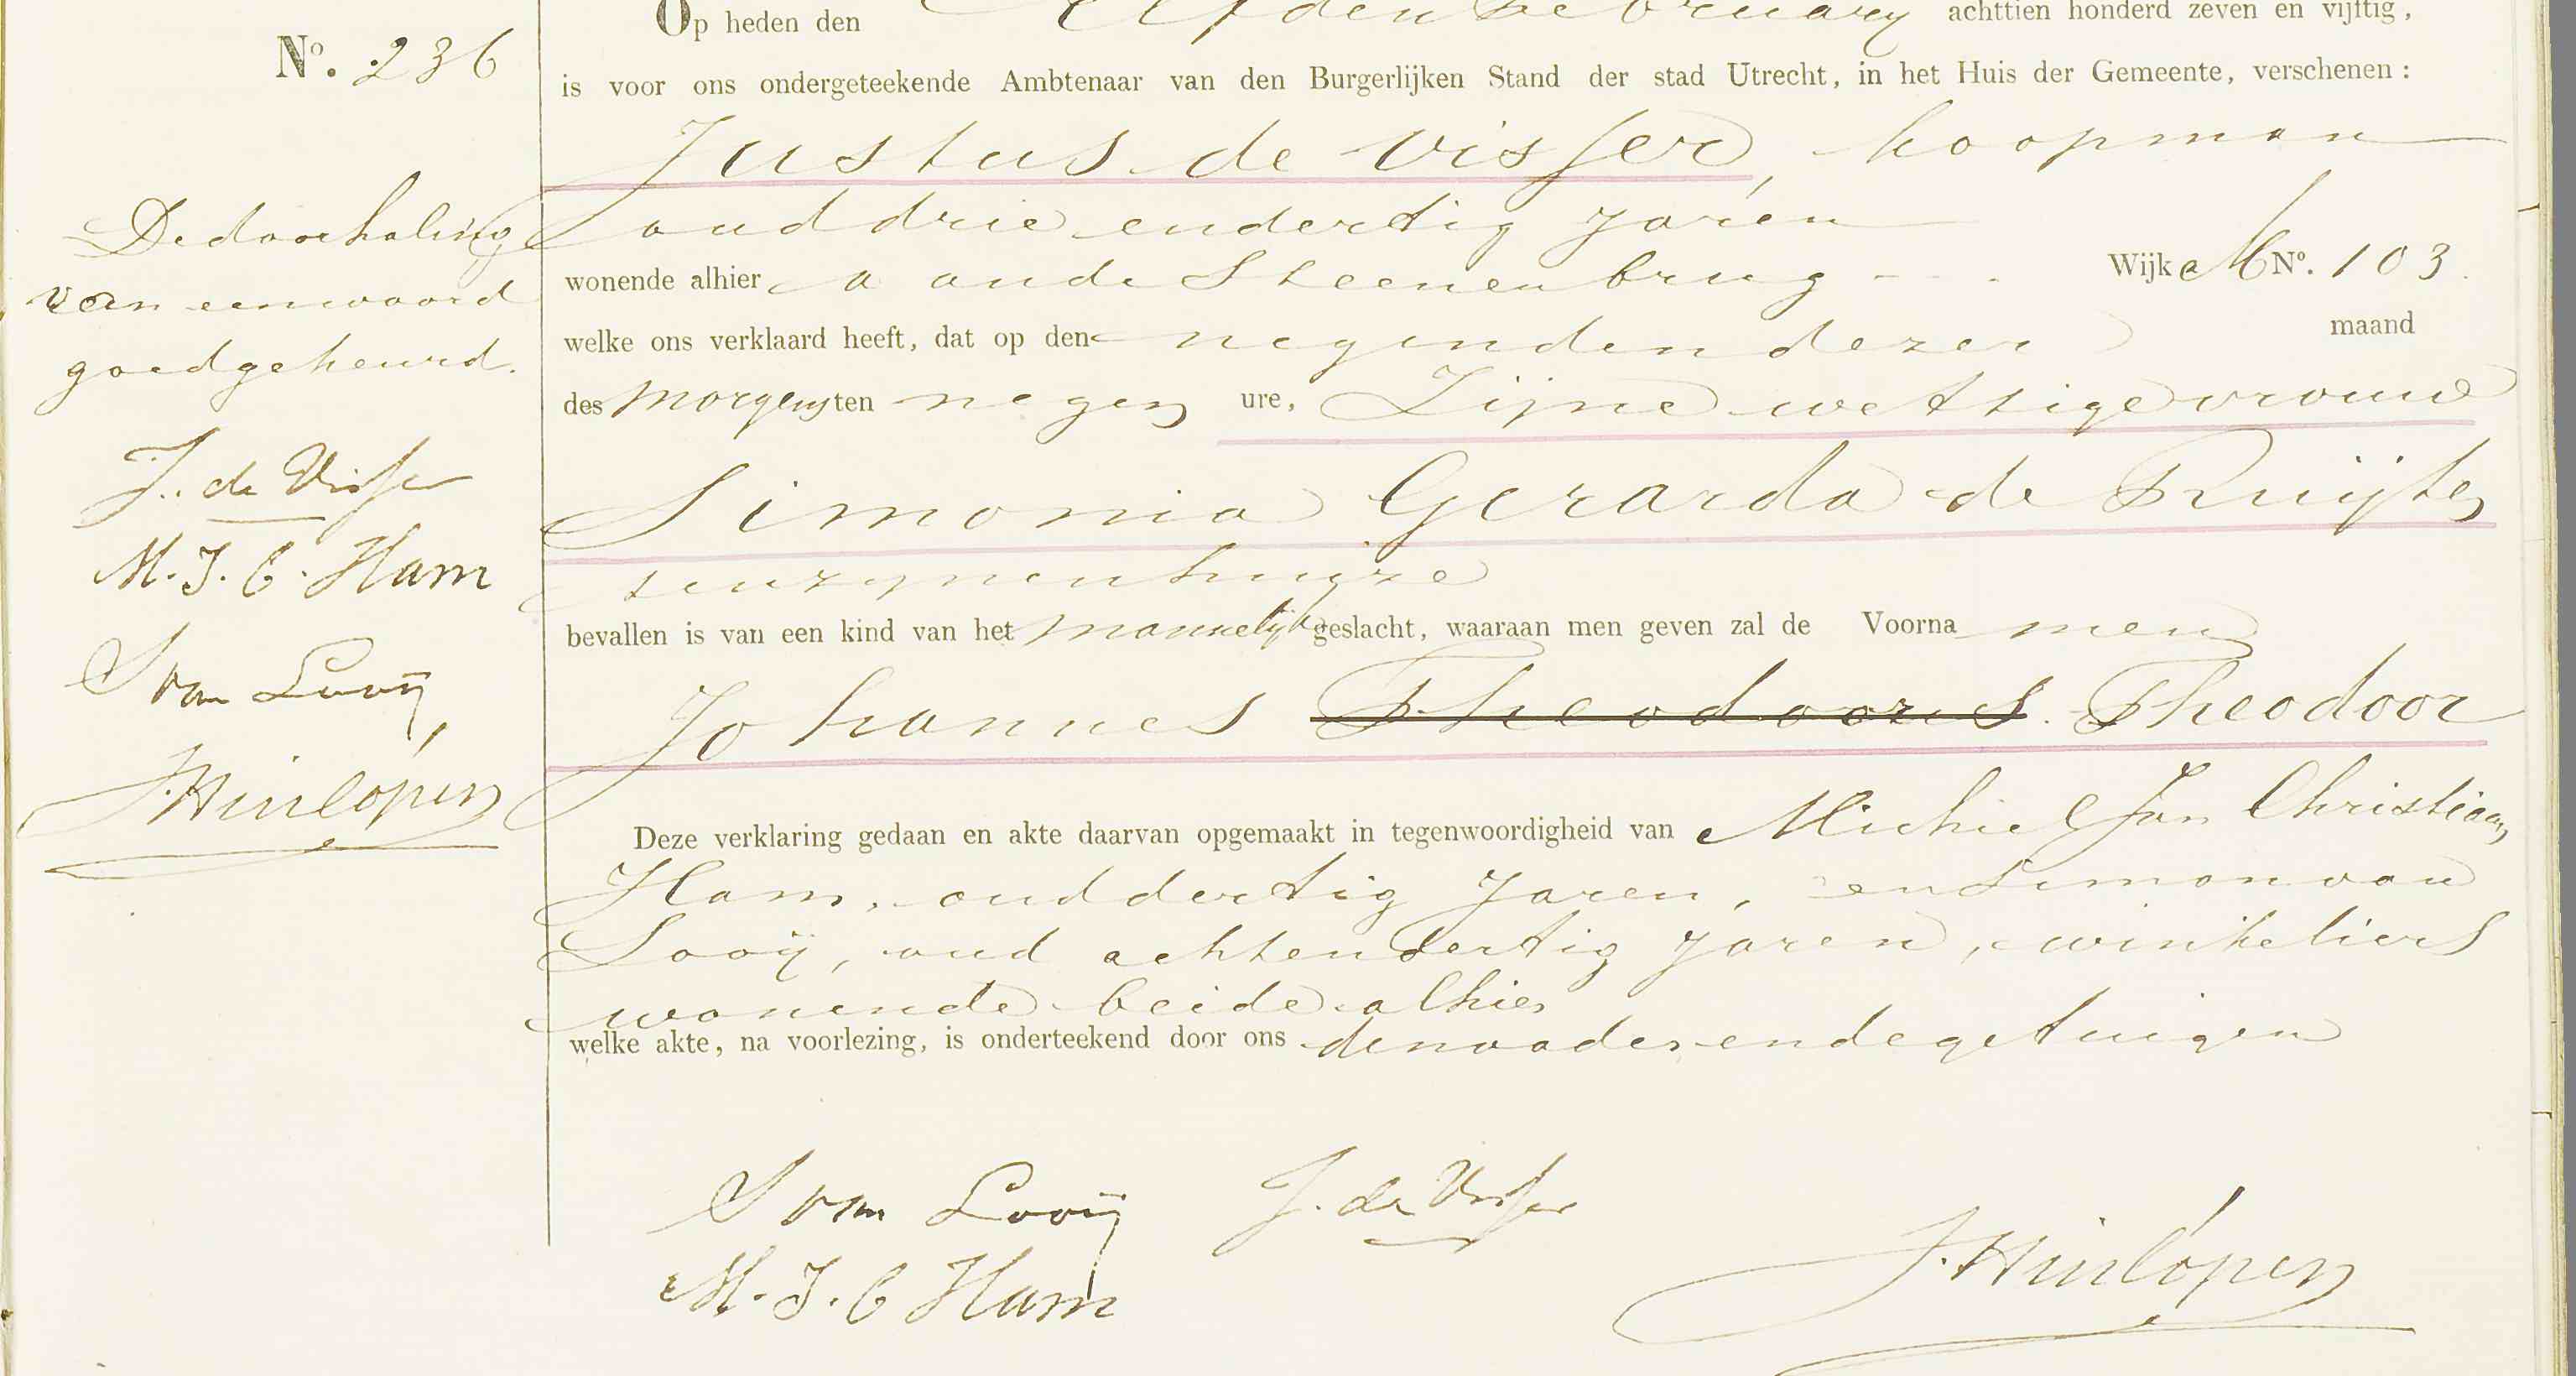 Op heden den Elfden February achttien honderd zeven en vijftig,
No. 236
is voor ons ondergeteekende Ambtenaar van den Burgerlijken Stand der stad Utrecht, in het Huis der Gemeente, verschenen:
Justus de Visser, koopman
oud drie endertig jaren
wonende alhier aande Steenenbrug - - . Wijk M No. 103.
welke ons verklaard heeft, dat op den negenden dezer maand
des morgens ten negen ure, Zijne wettige vrouw
Simonia Gerarda de Ruijter
tenzynenhuize
bevallen is van een kind van het mannelijk geslacht, waaraan men geven zal de Voorna men
Johannes Theodoorus. Theodoor
Deze verklaring gedaan en akte daarvan opgemaakt in tegenwoordigheid van Michiel Jan Christiaan
Ham, oud dertig jaren, en Simon van
Looij, oud achtendertig jaren, winkeliers
wonende beide alhier
welke akte, na voorlezing, is onderteekend door ons denvader en de getuigen
De doorhaling
van een woord
goedgekeurd.
J. de Visser
M. J. C. Ham
S van Looij
J. Hinlópen
S van Looij
J. de Visser
M. J. C Ham
J. Hinlópen